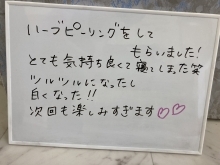 ハーブピーリングをして
もらいました!
とても気持ち良くて寝てしまった笑
ツルツルになったし
白くなった!!
次回も楽しみすぎます♡♡